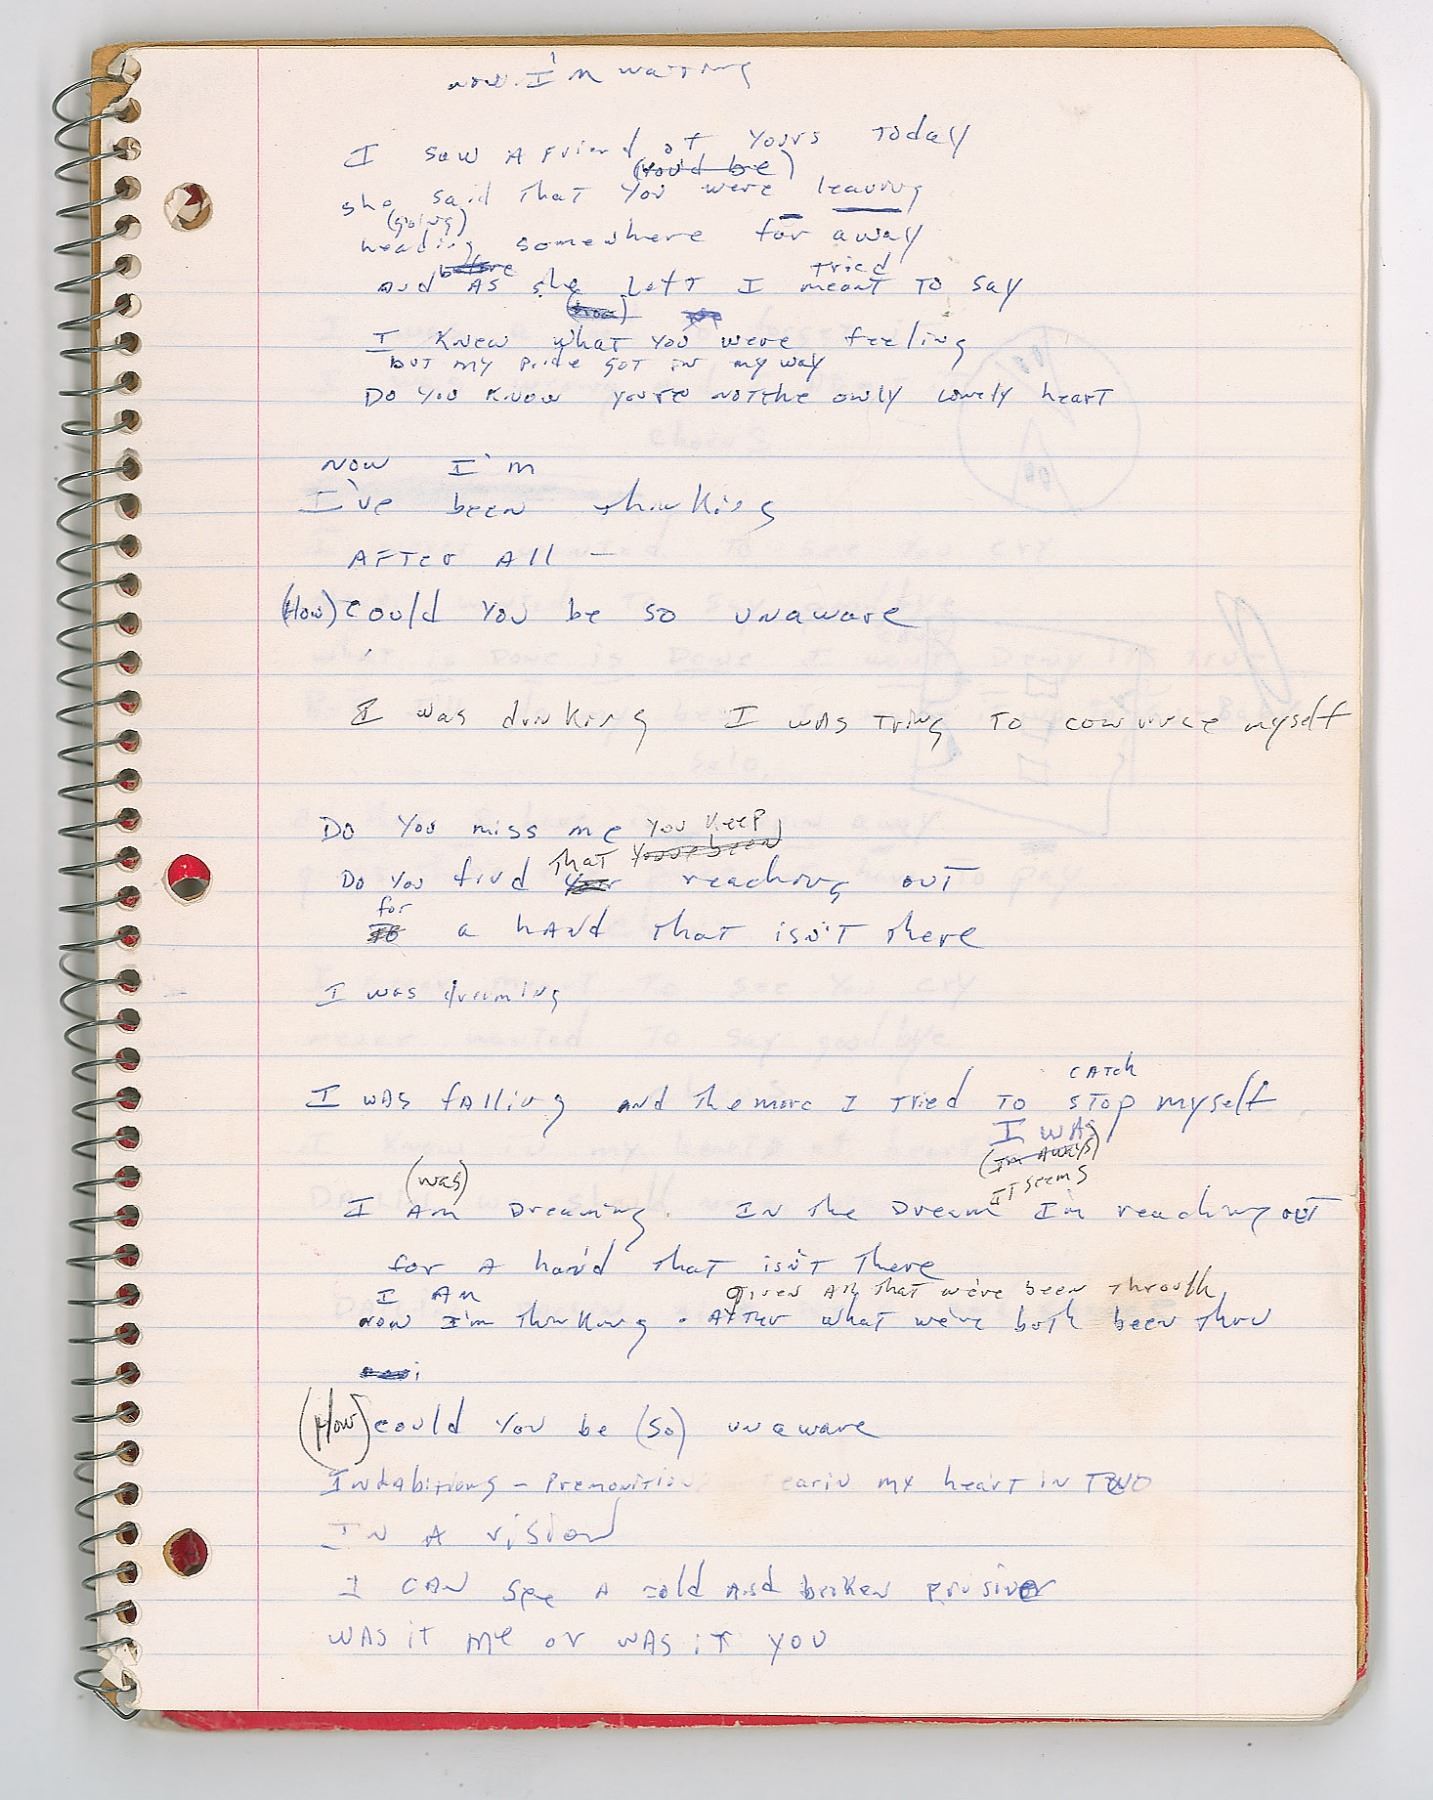 now I'm waiting
I saw A Friend of Yours Today
(You'd be)
she said That You were leaving
(going)
heading somewhere far away
before tried
and AS she Left I meant TO say
I Know what You were feeling
but my pride got in my way
Do You Know you're not the only lonely heart
NOW I'm
I've been thinking
AFTER All —
(How) could You be so unaware
I was drinking I WAS Tring TO convince myself
Do You miss me You Keep
That You've been
Do You find Your reaching OUT
for
to a hAnd That isn't there
I was dreaming
CATCh
I WAS fAlling and The more I Tried TO STOP myself
I WAS
(I'm Always)
(was) IT seems
I Am Dreaming. IN The Dream I'm reaching OUT
for A hand That isn't There
I Am Given All That we've been Through
now I'm Thinking . AfTer what we've both been Thru
(How) could You be (so) unaware
Inhabitions – Premonitions earin my heart in TWO
IN A vision
I CAN See A cold And broken prisiner
WAS iT Me or WAS iT YOU